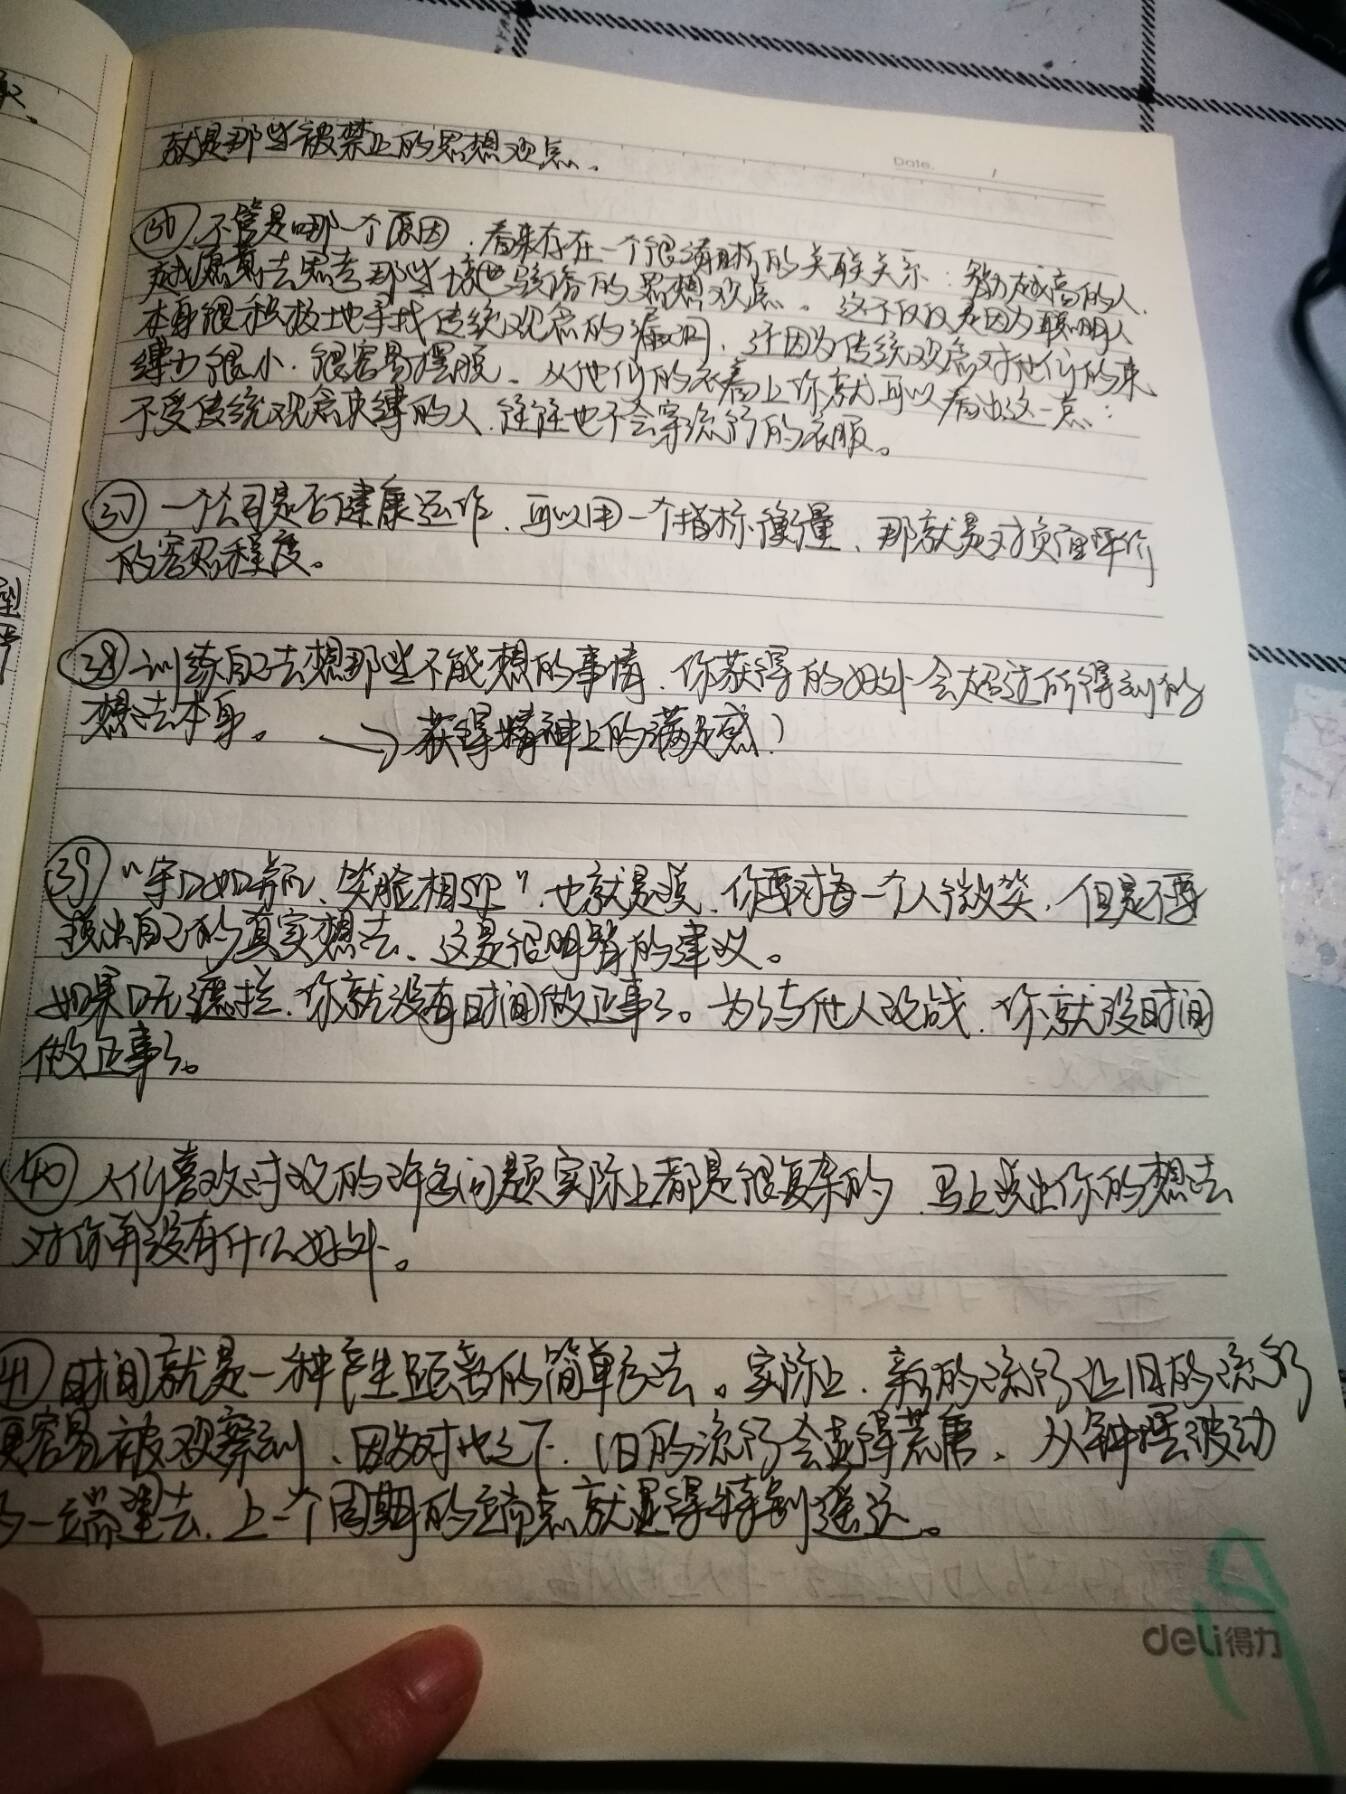 Date.
就是那些被禁止的思想观点。
㊱ 不管是哪一个原因,看来存在一个很清晰的关联关系:智力越高的人,
越愿意去思考那些惊世骇俗的思想观点。这不仅仅是因为聪明人
本身很积极地寻找传统观念的漏洞,还因为传统观念对他们的束
缚力很小,很容易摆脱。从他们的衣着上你就可以看出这一点:
不受传统观念束缚的人,往往也不会穿流行的衣服。
㊲ 一个公司是否健康运作,可以用一个指标衡量,那就是对负面评价
的容忍程度。
㊳ 训练自己去想那些不能想的事情,你获得的好处会超过所得到的
想法本身。 → 获得精神上的满足感?
㊴ "守口如瓶,笑脸相迎",也就是说,你要对每一个人微笑,但是不要
说出自己的真实想法,这是很明智的建议。
如果口无遮拦,你就没有时间做正事了。为了与他人论战,你就没时间
做正事了。
㊵ 人们喜欢讨论的许多问题实际上都是很复杂的,马上说出你的想法
对你再没有什么好处。
㊶ 时间就是一种产生距离的简单方法。实际上,新的流行让旧的流行
更容易被观察到,因为对比之下,旧的流行会显得荒唐。从钟摆摆动
的一端望去,上一个周期的端点就显得特别遥远。
deli得力